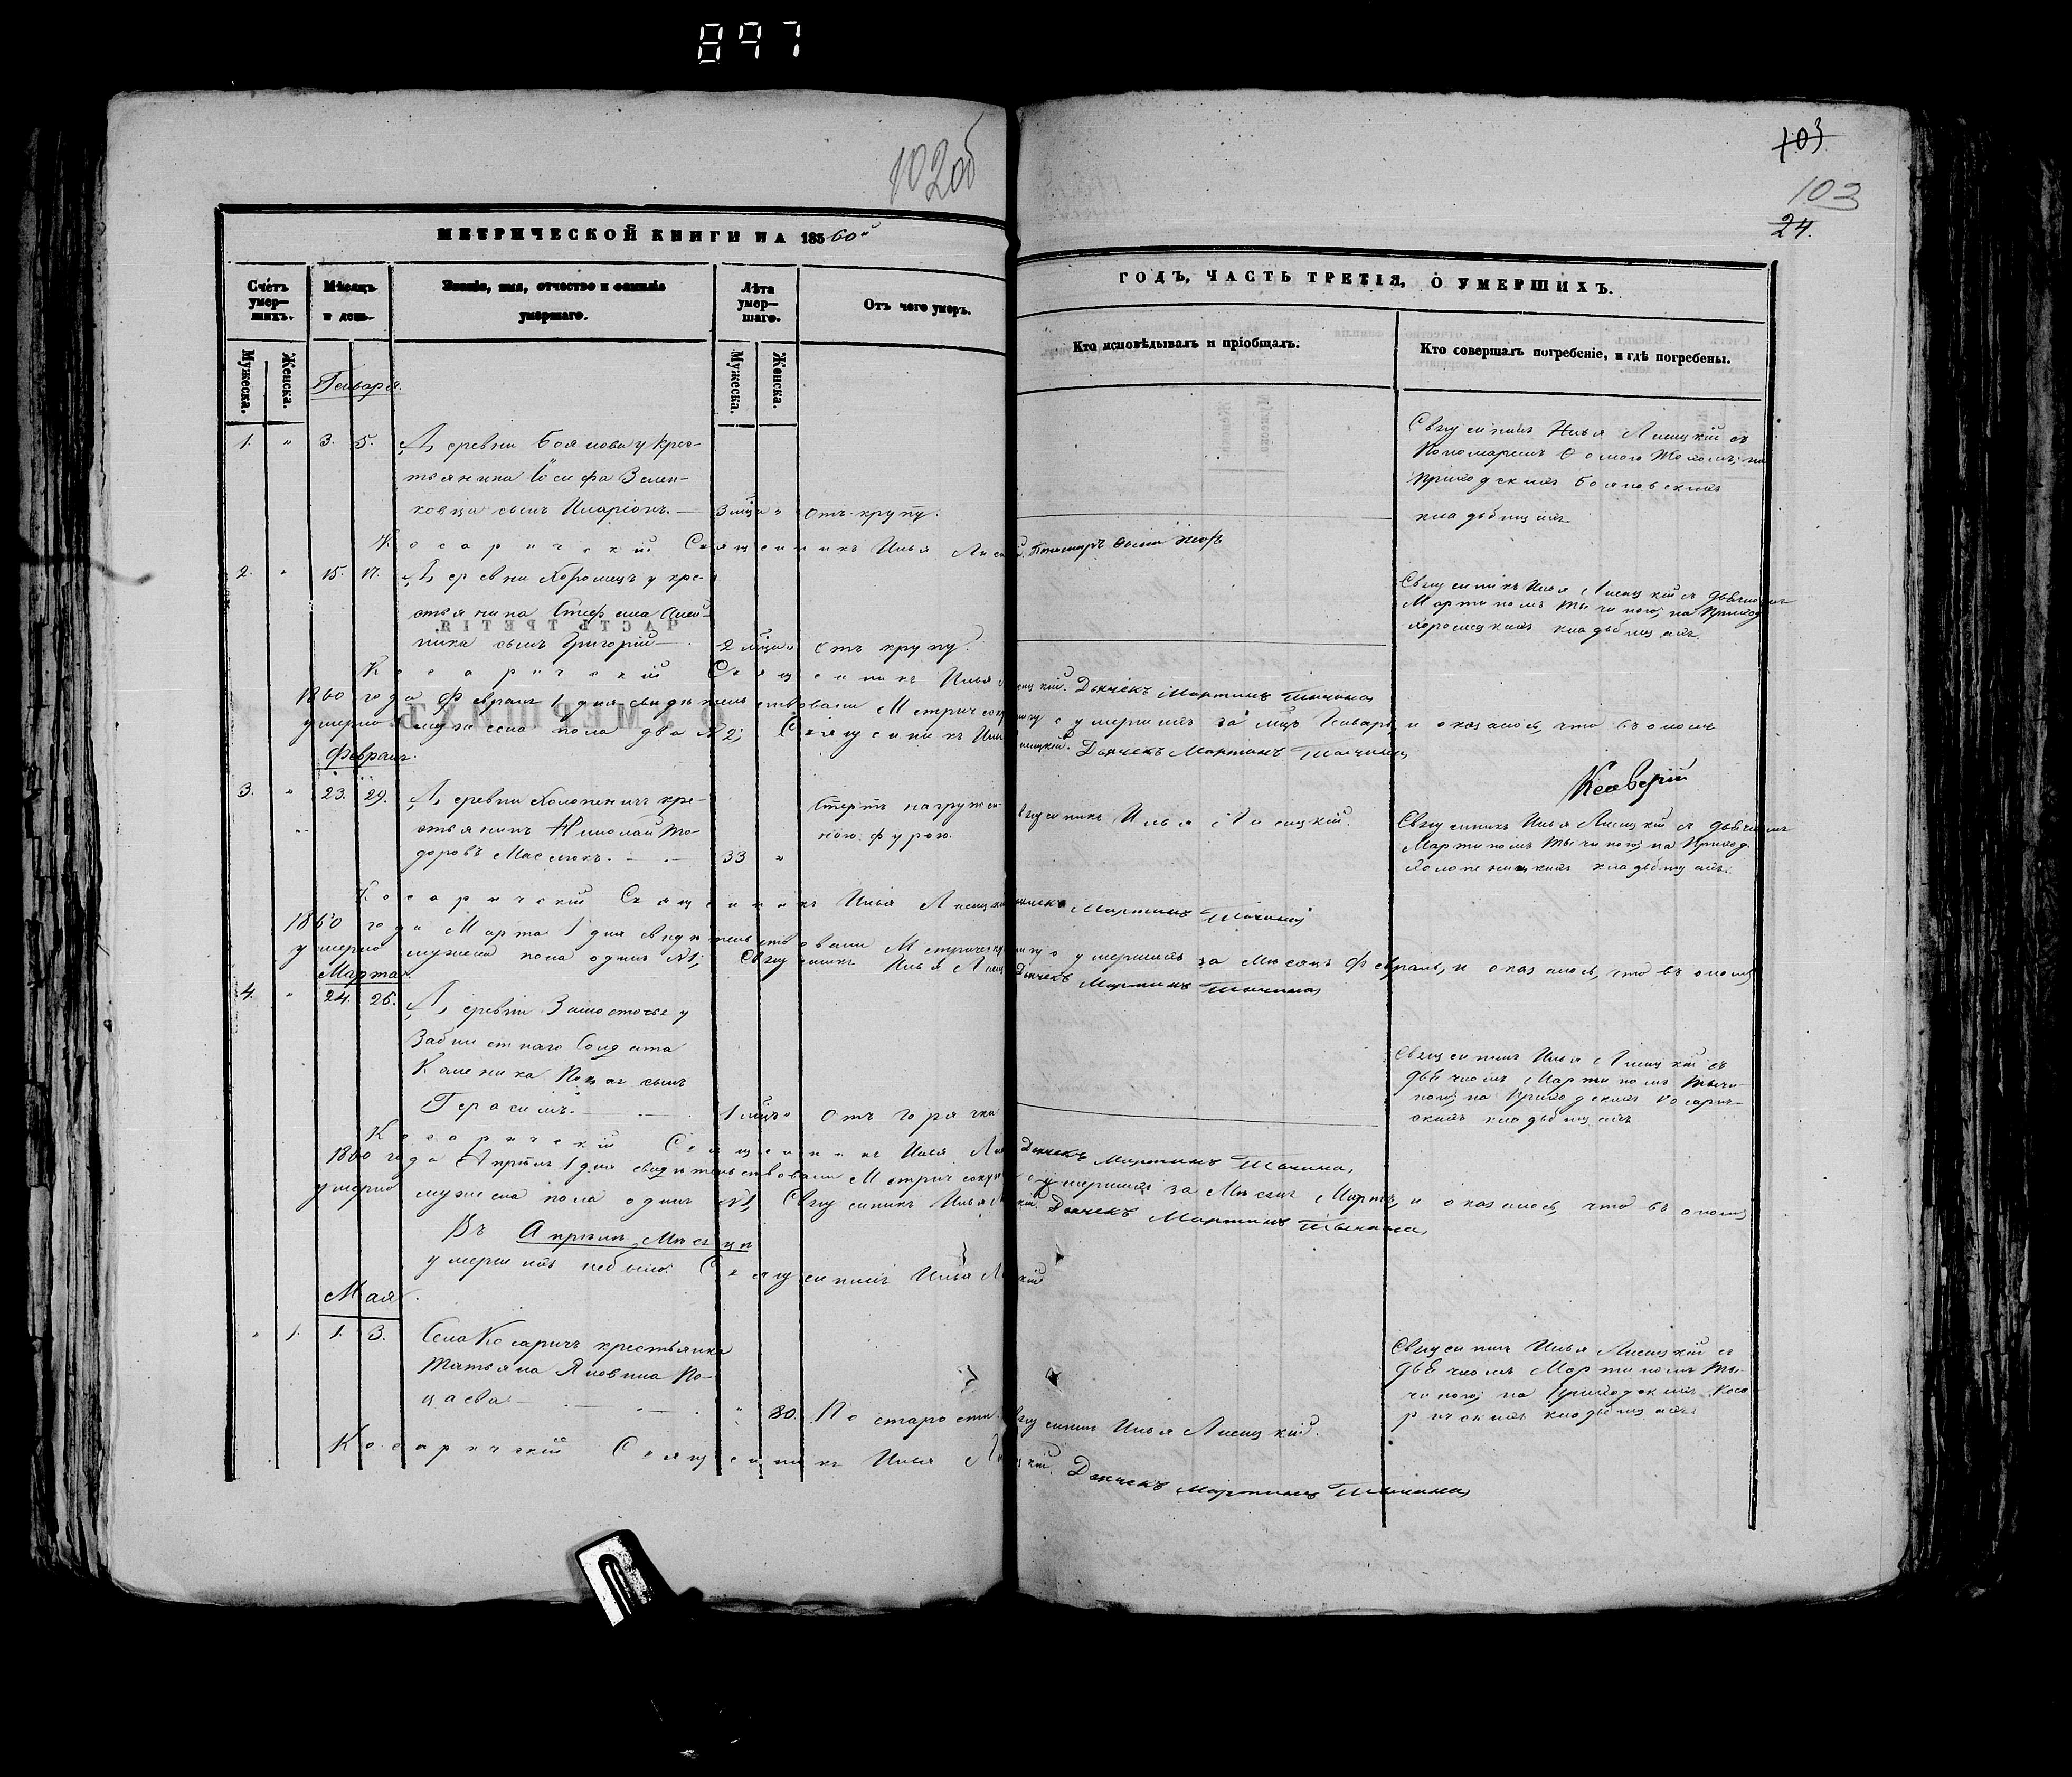 897
102об
103
103
24.
МЕТРИЧЕСКОЙ КНИГИ НА 18560й
ГОДЪ, ЧАСТЬ ТРЕТІЯ, О УМЕРШИХЪ.
Счетъ умер—шихъ.
Мѣсяцъ и день.
Званіе, имя, отчество и фамилія умершаго.
Лѣта умер—шаго.
Отъ чего умеръ.
Кто исповѣдывалъ и пріобщалъ.
Кто совершалъ погребеніе, и гдѣ погребены.
Мужеска.
Женска.
Мужеска.
Женска.
Генваря.
1. " 3. 5. Деревни Бояновау крес-
тьянина Іосифа Зелен-
ковца сынъ Иларіонъ. — 3 мца " отъ крупу.
Свщенникъ Илья Лисицкій съ
Пономаремъ Ѳомою на
приходскихъ Бояновскихъ
кладбищахъ
Косарическій Священникъ Илья Пономаръ Ѳома
2. " 15. 17. Деревни Хоромецъ у кре-
стьянина Стефана Олей-
ника сынъ Григорій — 2 мца " отъ крупу.
Свщенникъ Илья Лисицкій съ дьячкомъ
Мартиномъ Тычиною, на приход
Хоромецкихъ кладбищахъ.
Косарическій Священникъ Илья Лисицкій. Дьячекъ Мартинъ Тычина
1860 года Февраля 1 дня свидѣтельствовали Метрическую книгу о умершихъ за мцъ Генварь, и оказалось, что въ ономъ
умерло мужеска пола два № 2; Священникъ Илья Лисицкій. Дьячекъ Мартинъ Тычина
Февраля.
3. " 23. 29. Деревни Холопеничъ кре-
стьянинъ Николай То-
доровъ Маслюкъ. — — 33 "
Стертъ нагружен-
ною фурою.
Свщенникъ Илья Лисицкій.
Ксаверій
Свщенникъ Илья Лисицкій съ дьячкомъ
Мартиномъ Тычиною, на приход.
Холопеницкихъ кладбищахъ.
Косарическій Священникъ Илья Мартинъ Тычина
1860 года Марта 1 дня свидѣтельствовали Метрическую книгу о умершихъ за Мѣсяцъ Февраль, и оказалось, что въ ономъ
умерло мужеска пола одинъ № 1; Свщенникъ Илья Дьячекъ Мартинъ Тычина
Марта.
4. " 24. 26. Деревни Замосточье у
Забилетнаго Солдата
Каленика Поцая сынъ
Герасимъ. — — 1 мцъ " отъ горячки
Свщенникъ Илья Лисицкій съ
дьячкомъ Мартиномъ Тычи-
ною, на приходскихъ Косарич-
скихъ кладбищахъ
Косарическій Священникъ Илья Дьячекъ Мартинъ Тычина,
1860 года Апрѣля 1 дня свидѣтельствовали Метрическую о умершихъ за Мѣсяцъ Мартъ, и оказалось, что въ ономъ
умерло мужеска пола одинъ № 1, Свщенникъ Илья Дьячекъ Мартинъ Тычина,
Въ Апрѣлѣ Мѣсяцѣ
умершихъ небыло. Священникъ Илья
Мая.
" 1. 1. 3. Села Косаричъ крестьянка
Татьяна Яковина По-
цаева — — " 80. По старости.
Свщенникъ Илья Лисицкій.
Свщенникъ Илья Лисицкій съ
дьячкомъ Мартиномъ Ты-
чиною, на приходскихъ Коса-
рическихъ кладбищахъ
Косарическій Священникъ Илья Дьячекъ Мартинъ Тычина,